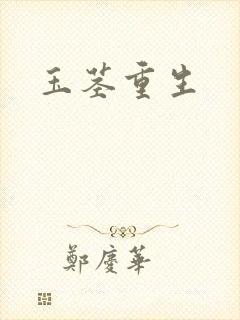 玉茎重生
鄭慶華